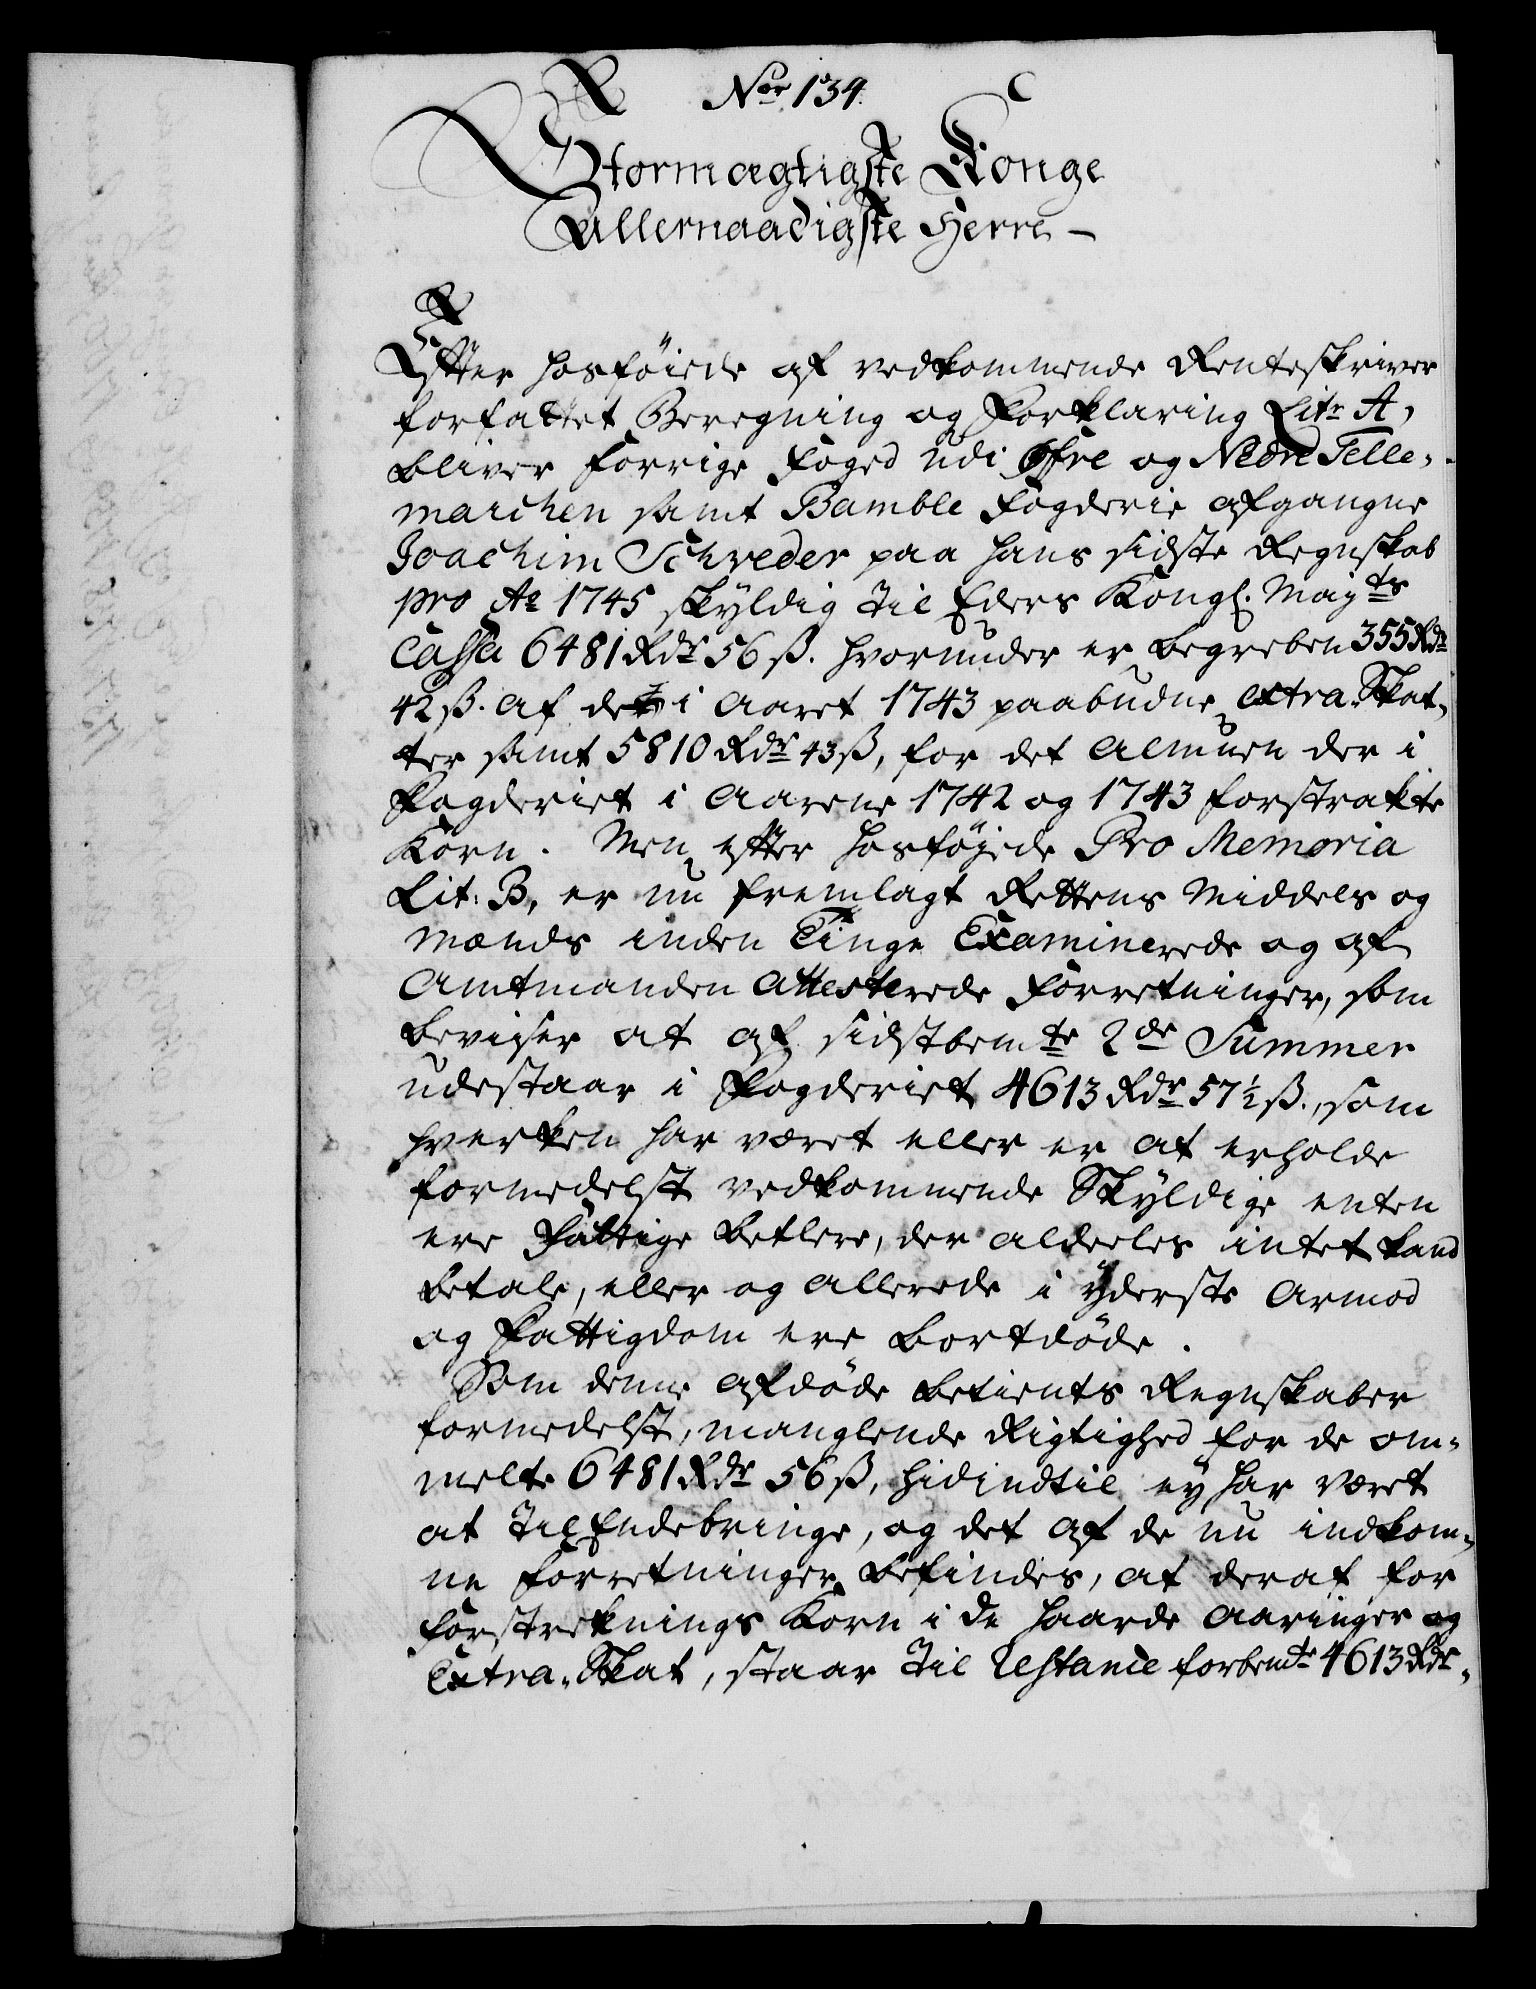 Nor 134.
Stormægtigste Konge
Allernaadigste Herre –
Efter hosføiede af vedkommende Renteskriver
forfattet Beregning og Forklaring Litr A,
bliver forrige Foged udi Øfre og Nedre Telle,
marchen samt Bamble Fogderie afgangne
Joachim Schreder paa hans sidste Regnskab
pro Ao 1745 skÿldig til Eders Kongl. Mayts
Cassa 6481 Rdr 56 ß. hvorunder er begreben 355 Rdr
42 ß. af det i Aaret 1743 paabudne extra Skat,
ter samt 5810 Rdr 43 ß, for det Almuen der i
Fogderiet i Aarene 1742 og 1743 forstrakte
Korn. Men efter hosføyede Pro Memoria
Lit: B, er nu fremlagt Rettens Middels og
Mænds inden Tinge Examinerede og af
Amtmanden Attesterede Forretninger, som
beviser at af sidstbemte 2de Summer
udestaar i Fogderiet 4613 Rdr 57½ ß., som
hverken har været eller er at erholde
formedelst vedkommende Skÿldige enten
ere Fattige betlere, der aldeeles intet kand
betale, eller og allerede i ÿderste Armod
og Fattigdom ere bortdøde.
Som denne afdøde betients Regnskaber
formedelst, manglende Rigtighed for de om-
melte 6481 Rdr 56 ß, hidindtil ey har været
at tilEndebringe, og det af de nu indkom,
ne Forretninger befindes, at deraf for
Forstreknings Korn i de haarde Aaringer og
Extra Skat, staar til Restance forbemte 4613 Rdr.